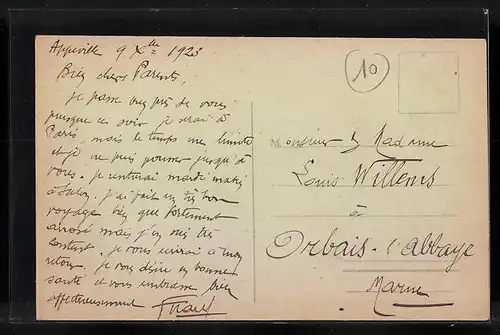 Appeville 9 Xbre 1923
Bien chers Parents,
je passe bien près de vous
puisque ce soir je serai à
Paris, mais le temps me limite
et je ne puis pousser jusqu'à
vous. je rentrerai mardi matin
à . J'ai fait un très bon
voyage bien que fortement
arrosé mais j'en suis très
content. je vous écrirai à mon
retour. je vous désire en bonne
santé et vous embrasse bien
affectueusement
10
Monsieur & Madame
Louis Willems
à
Orbais-l'abbaye
Marne